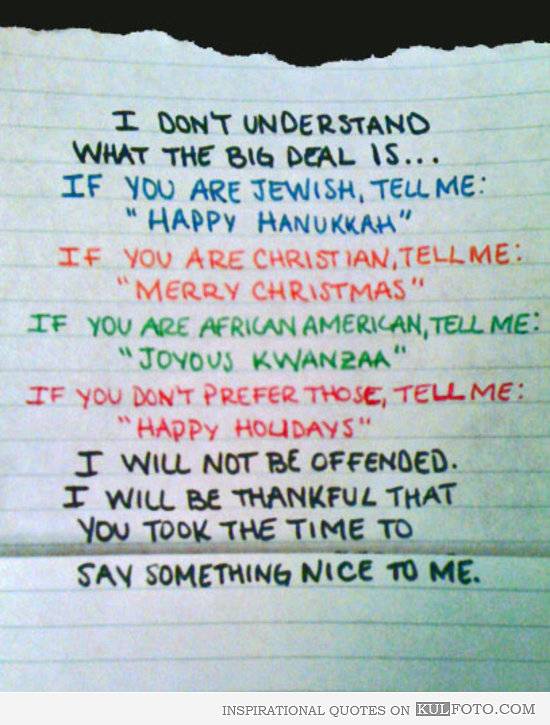 I DON'T UNDERSTAND
WHAT THE BIG DEAL IS...
IF YOU ARE JEWISH, TELL ME:
"HAPPY HANUKKAH"
IF YOU ARE CHRISTIAN, TELL ME:
"MERRY CHRISTMAS"
IF YOU ARE AFRICAN AMERICAN, TELL ME:
"JOYOUS KWANZAA"
IF YOU DON'T PREFER THOSE, TELL ME:
"HAPPY HOLIDAYS"
I WILL NOT BE OFFENDED.
I WILL BE THANKFUL THAT
YOU TOOK THE TIME TO
SAY SOMETHING NICE TO ME.
INSPIRATIONAL QUOTES ON KULFOTO.COM